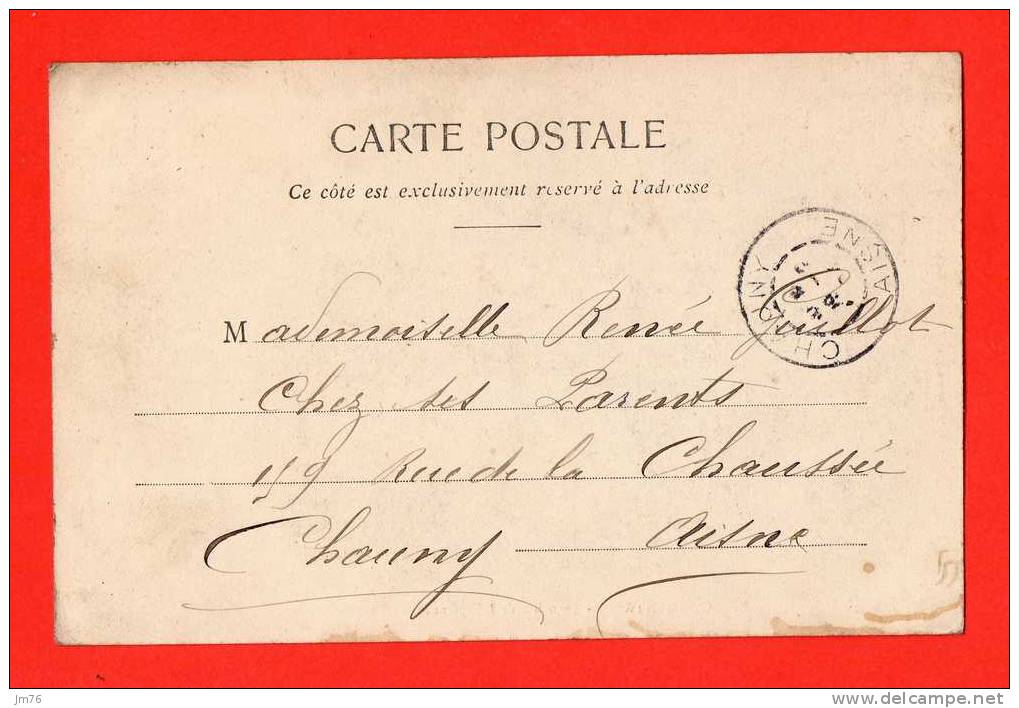 CARTE POSTALE
Ce côté est exclusivement reservé à l'adresse
CHAUNY
AISNE
Mademoiselle Renée Guillot
Chez ses Parents
159 Rue de la Chaussée
Chauny Aisne
jm76
www.delcampe.net